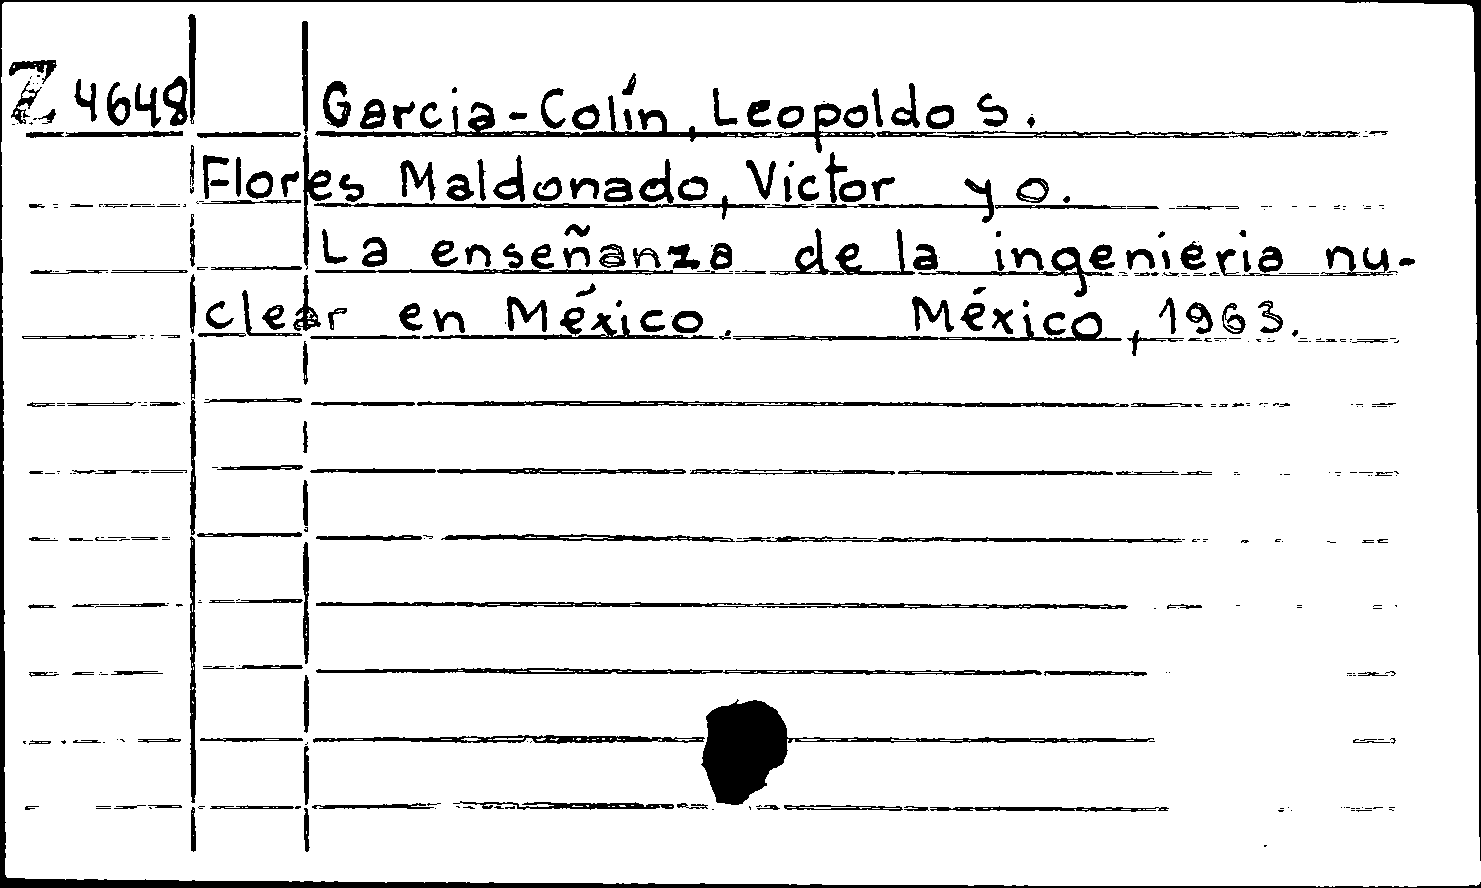 Z 4648 Garcia-Colín, Leopoldo S.
Flores Maldonado, Victor y o.
La enseñanza de la ingenieria nu-
clear en México. México, 1963.